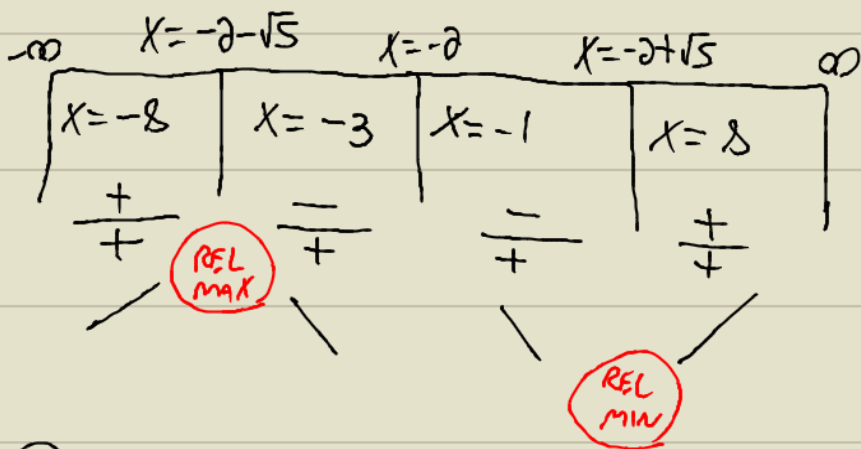 -∞ X=-2-√5 X=-2 X=-2+√5 ∞
X=-8 X=-3 X=-1 X=8
+ - - +
+ + + +
REL
MAX
REL
MIN